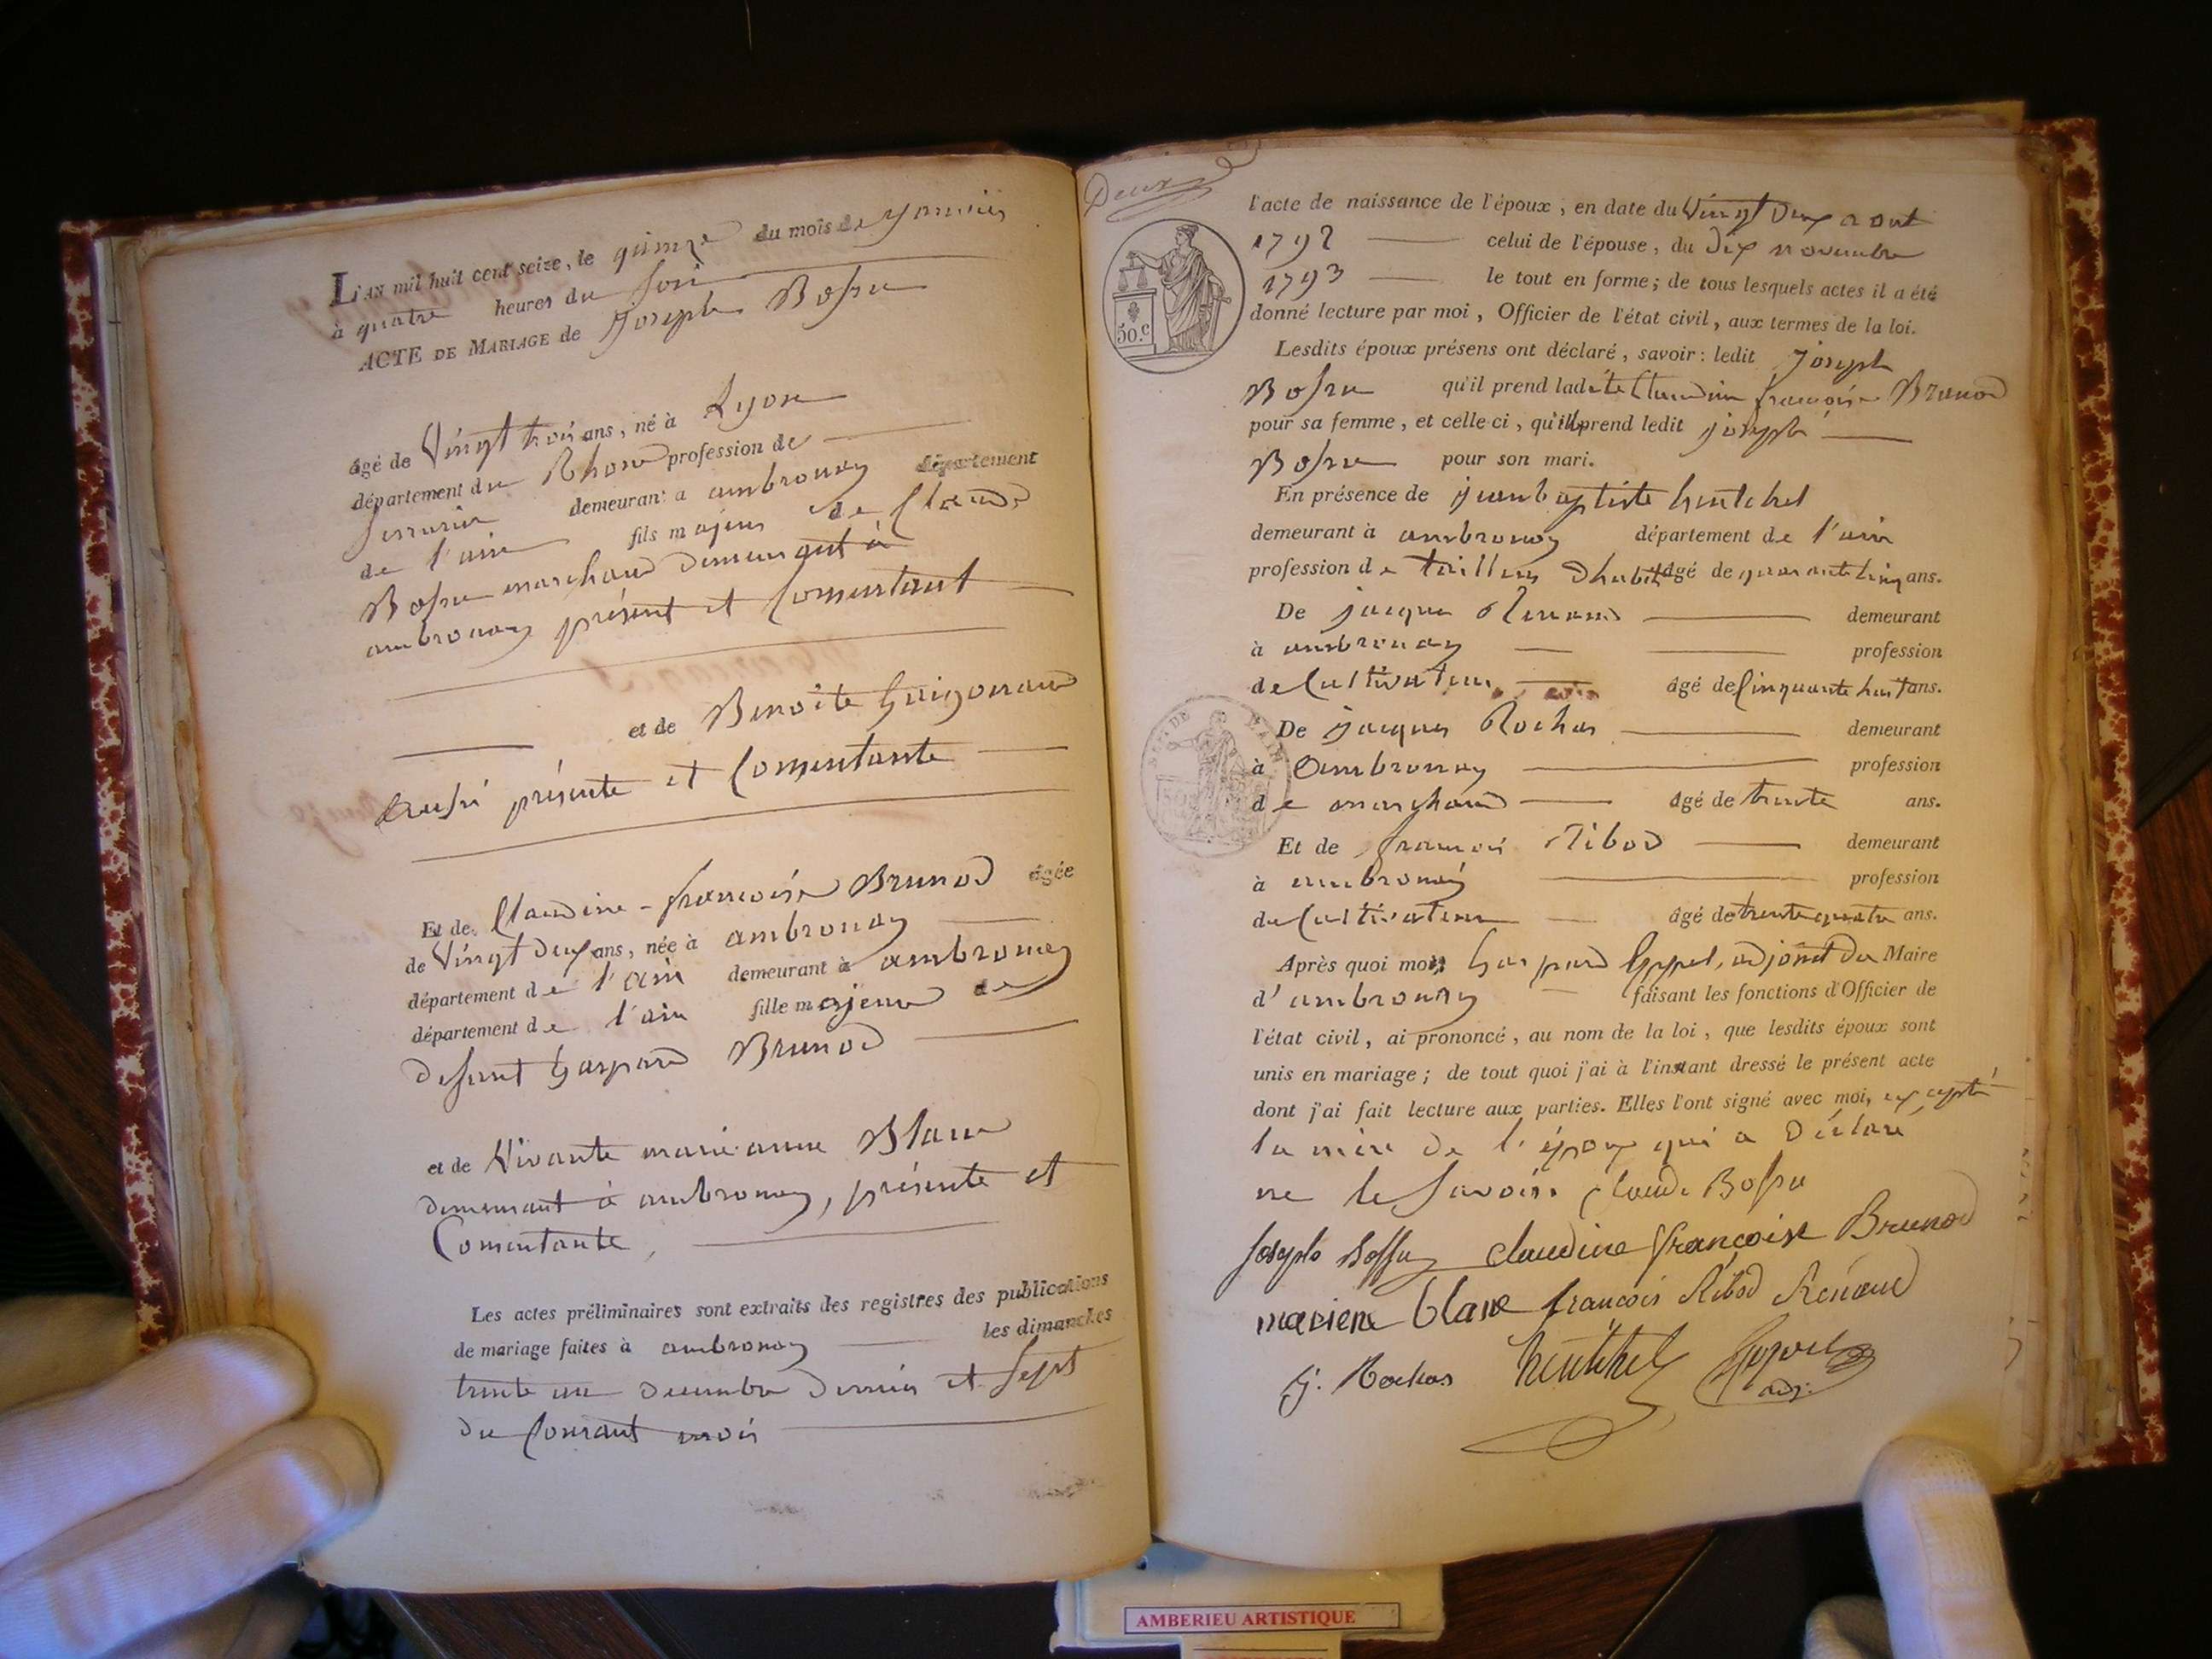 L'AN mil huit cent seize, le quinze du mois de janvier
à quatre heures du soir
ACTE DE MARIAGE de Joseph Bossu
âgé de Vingt trois ans, né à Lyon
département du Rhone profession de
serrurier demeurant à ambronay département
de l'ain fils majeur de Claude
Bossu marchand demeurant à
ambronay présent et Consentant
et de Benoite Guigonand
aussi présente et Consentante
Et de Claudine-françoise Brunod âgée
de Vingt deux ans, née à ambronay
département de l'ain demeurant à ambronay
département de l'ain fille majeure de
defunt Gaspard Brunod
et de Vivante marie anne Blanc
demeurant à ambronay, présente et
Consentante,
Les actes préliminaires sont extraits des registres des publications
de mariage faites à ambronay les dimanches
trente un decembre dernier et sept
du Courant mois
Deux
l'acte de naissance de l'époux, en date du Vingt Deux aout
1792 celui de l'épouse, du dix novembre
1793 le tout en forme; de tous lesquels actes il a été
donné lecture par moi, Officier de l'état civil, aux termes de la loi.
50.c
Lesdits époux présens ont déclaré, savoir: ledit Joseph
Bossu qu'il prend ladite Claudine françoise Brunod
pour sa femme, et celle-ci, qu'elle prend ledit joseph
Bossu pour son mari.
En présence de jean baptiste hentchel
demeurant à ambronay département de l'ain
profession de tailleur d'habit âgé de quarante cinq ans.
De jacque Renaud demeurant
à ambronay profession
de Cultivateur âgé de Cinquante huit ans.
De jacques Rochas demeurant
à Ambronay profession
de marchand âgé de trente ans.
Et de françois Ribod demeurant
à ambronay profession
de Cultivateur âgé de trente quatre ans.
Après quoi moi, Gaspard adjoint du Maire
d'ambronay faisant les fonctions d'Officier de
l'état civil, ai prononcé, au nom de la loi, que lesdits époux sont
unis en mariage; de tout quoi j'ai à l'instant dressé le présent acte
dont j'ai fait lecture aux parties. Elles l'ont signé avec moi, excepté
la mère de l'époux qui a Déclaré
ne le savoir. Claude Bossu
Joseph Bossu Claudine françoise Brunod
mariene blanc françois Ribod Renaud
J. Rochas hentchel adj.
AMBERIEU ARTISTIQUE